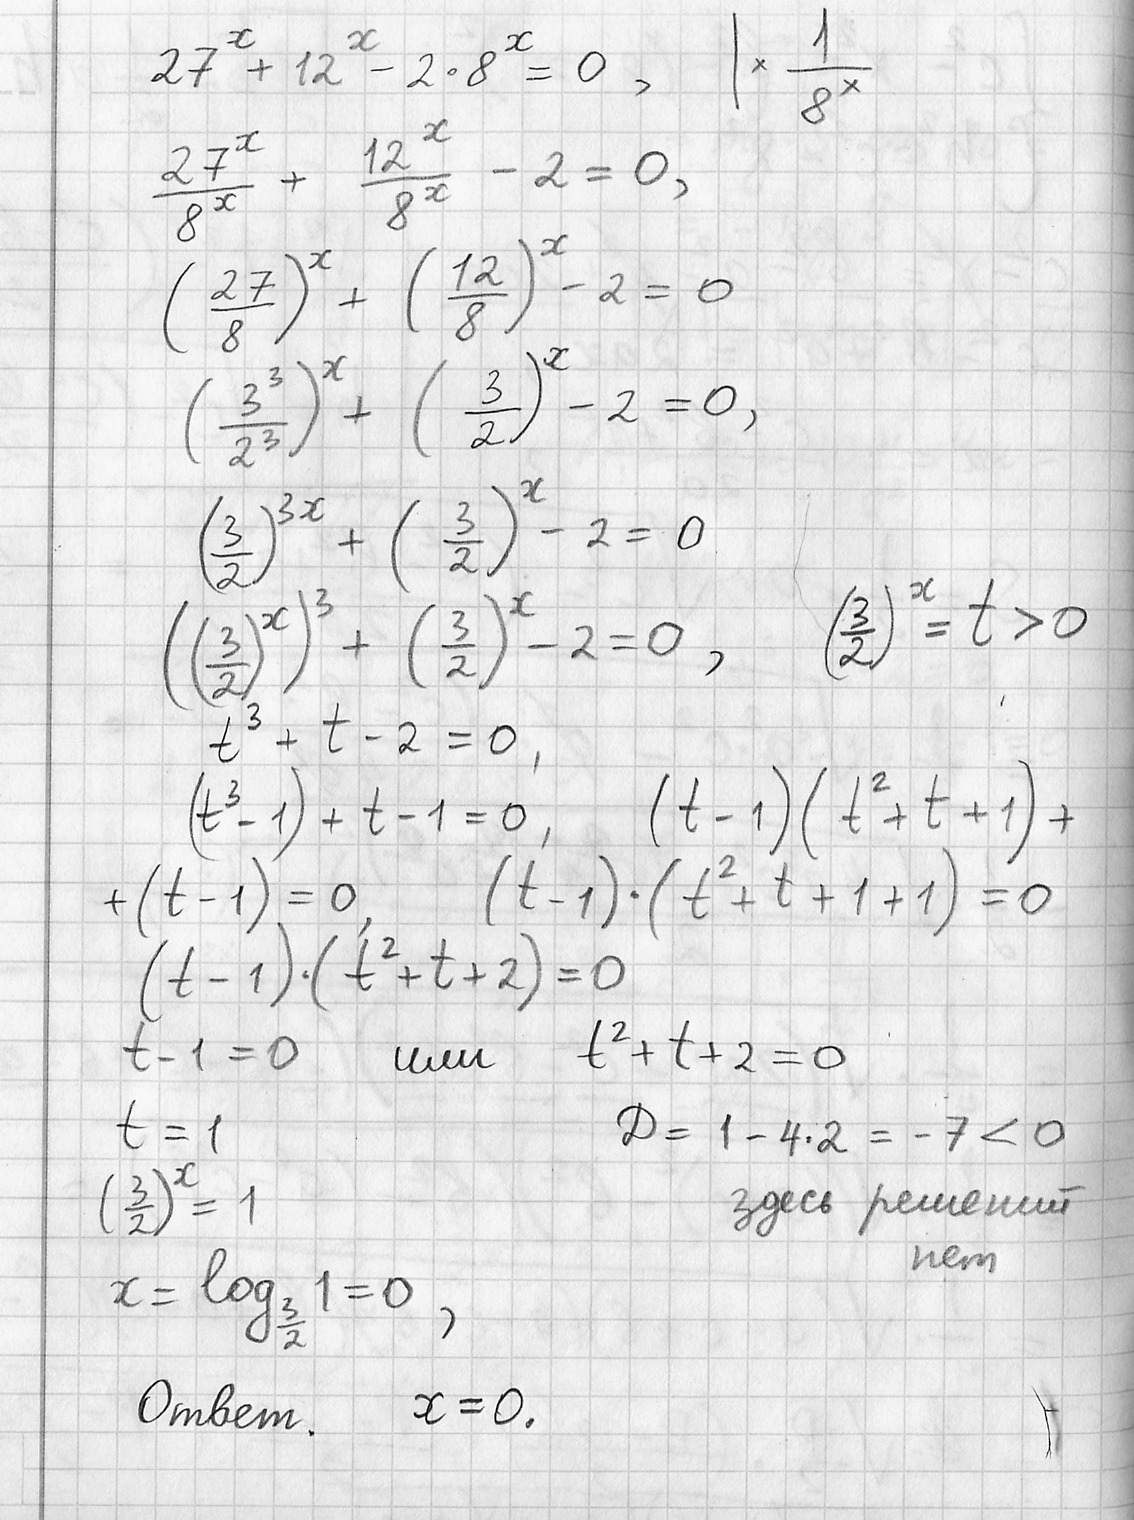 27^x + 12^x - 2·8^x = 0, | × 1/8^x
27^x/8^x + 12^x/8^x - 2 = 0,
(27/8)^x + (12/8)^x - 2 = 0
(3^3/2^3)^x + (3/2)^x - 2 = 0,
(3/2)^{3x} + (3/2)^x - 2 = 0
((3/2)^x)^3 + (3/2)^x - 2 = 0, (3/2)^x = t > 0
t^3 + t - 2 = 0,
(t^3 - 1) + t - 1 = 0, (t - 1)(t^2 + t + 1) +
+ (t - 1) = 0, (t - 1)·(t^2 + t + 1 + 1) = 0
(t - 1)·(t^2 + t + 2) = 0
t - 1 = 0 или t^2 + t + 2 = 0
t = 1 D = 1 - 4·2 = -7 < 0
(3/2)^x = 1 здесь решений
нет
x = log_{3/2} 1 = 0,
Ответ. x = 0.